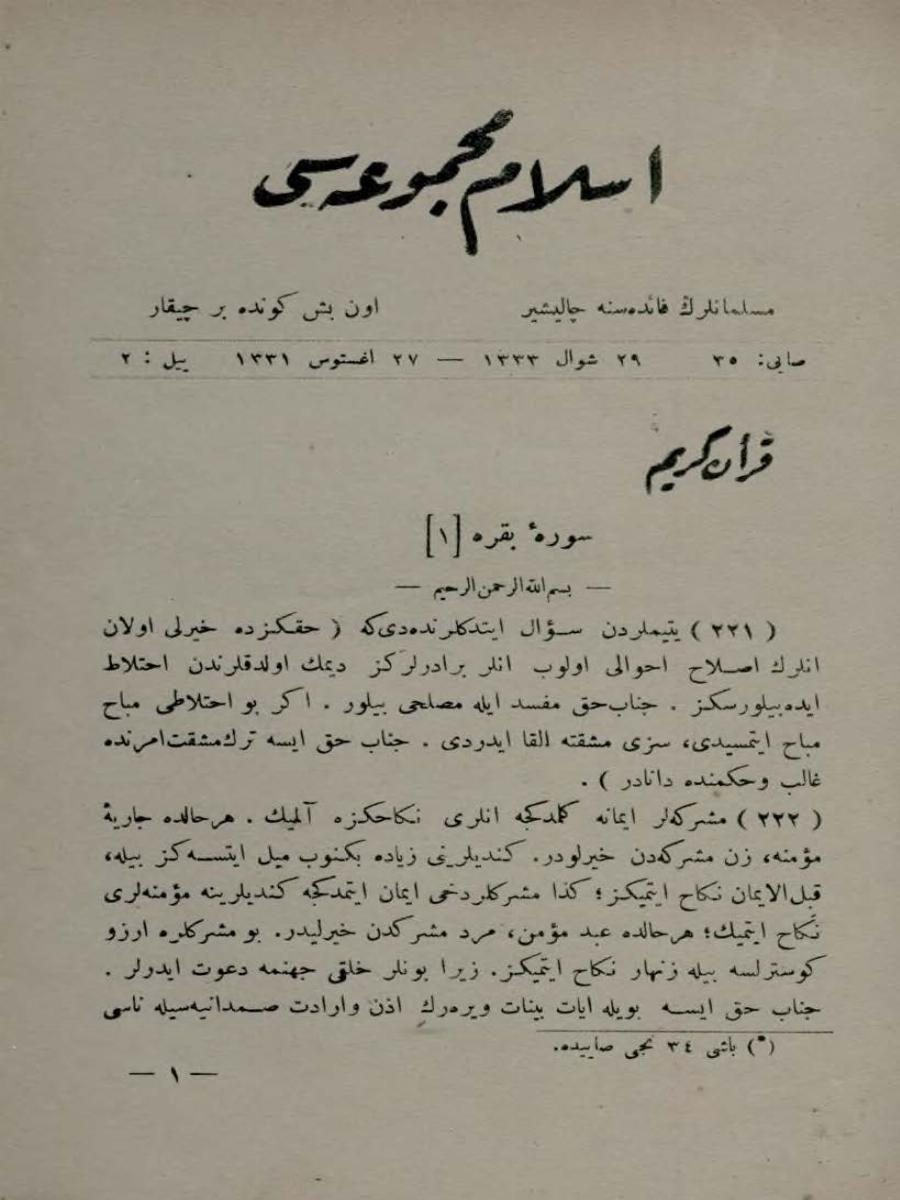 اسلام مجموعه سی
مسلمانلرڭ فائده‌سنه چالیشیر
اون بش كونده بر چیقار
صایی: ٣٥ ٢٩ شوال ١٣٣٣ — ٢٧ اغستوس ١٣٣١ ییل : ٢
قرآن كریم
سورهٔ بقره [١]
— بسم الله الرحمن الرحیم —
( ٢٢١ ) یتیملردن سؤال ایتدكلرنده‌دی‌كه ( حقكزده خیرلی اولان
انلرك اصلاح احوالی اولوب انلر برادرلركز دیمك اولدقلرندن احتلاط
ایده‌بیلورسكز . جناب‌حق مفسد ایله مصلحی بیلور . اكر بو احتلاطی مباح
مباح ایتمسیدی، سزی مشقته القا ایدردی . جناب حق ایسه ترك‌مشقت‌امرنده
غالب وحكمنده دانادر ) .
( ٢٢٢ ) مشركه‌لر ایمانه كلمدكجه انلری نكاحكزه آلمیك . هرحالده جاریهٔ
مؤمنه، زن مشركه‌دن خیرلودر. كندیلرینی زیاده بكنوب میل ایتسه‌كز بیله،
قبل‌الایمان نكاح ایتمیكز؛ كذا مشركلردخی ایمان ایتمدكجه كندیلرینه مؤمنه‌لری
نكاح ایتمیك؛ هرحالده عبد مؤمن، مرد مشركدن خیرلیدر. بو مشركلره ارزو
كوسترلسه بیله زنهار نكاح ایتمیكز. زیرا بونلر خلقی جهنمه دعوت ایدرلر .
جناب حق ایسه بویله ایات بینات ویره‌رك اذن وارادت صمدانیه‌سیله ناسی
(*) باشی ٣٤ نجی صاییده.
— ١ —